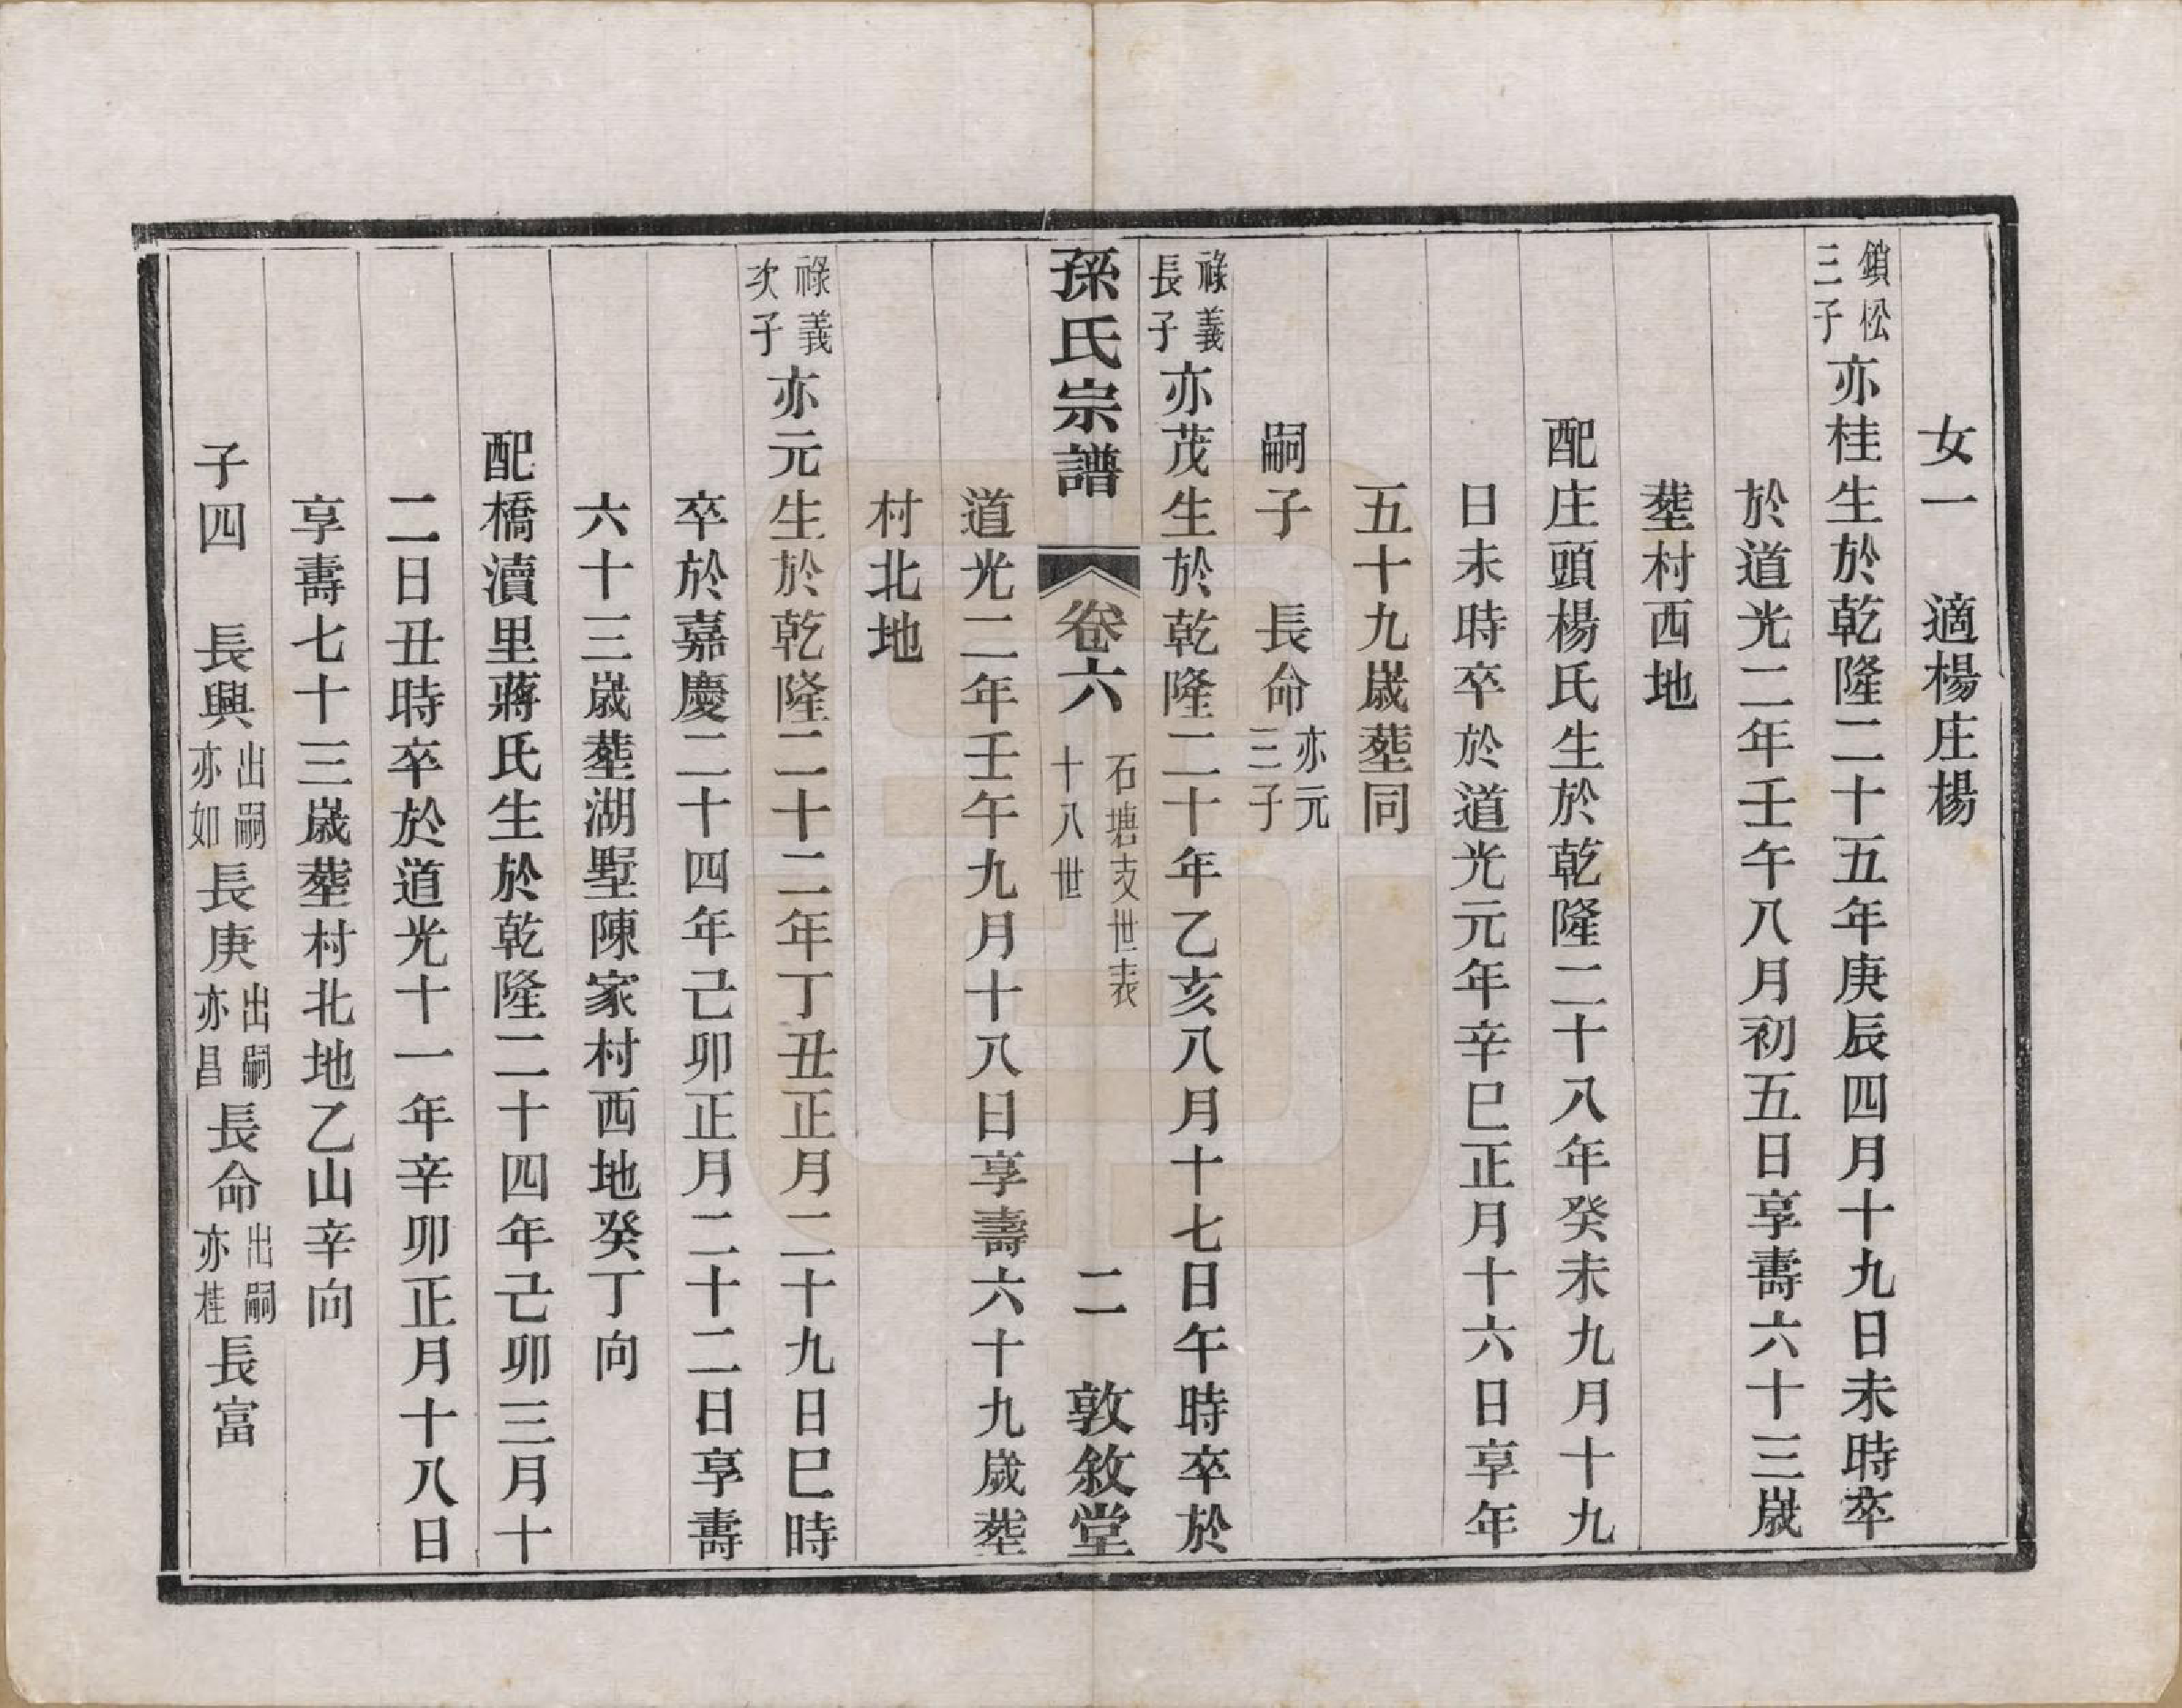 女一　適楊庄楊
鎖松三子亦桂生於乾隆二十五年庚辰四月十九日未時卒
於道光二年壬午八月初五日享壽六十三歲
塟村西地
配庄頭楊氏生於乾隆二十八年癸未九月十九
日未時卒於道光元年辛巳正月十六日享年
五十九歲塟同
嗣子　長命亦元三子
祿義長子亦茂生於乾隆二十年乙亥八月十七日午時卒於
孫氏宗譜　卷六　石塘支世表十八世　二　敦敘堂
道光二年壬午九月十八日享壽六十九歲塟
村北地
祿義次子亦元生於乾隆二十二年丁丑正月二十九日巳時
卒於嘉慶二十四年己卯正月二十二日享壽
六十三歲塟湖墅陳家村西地癸丁向
配橋瀆里蔣氏生於乾隆二十四年己卯三月十
二日丑時卒於道光十一年辛卯正月十八日
享壽七十三歲塟村北地乙山辛向
子四　長興出嗣亦如長庚出嗣亦昌長命出嗣亦桂長富